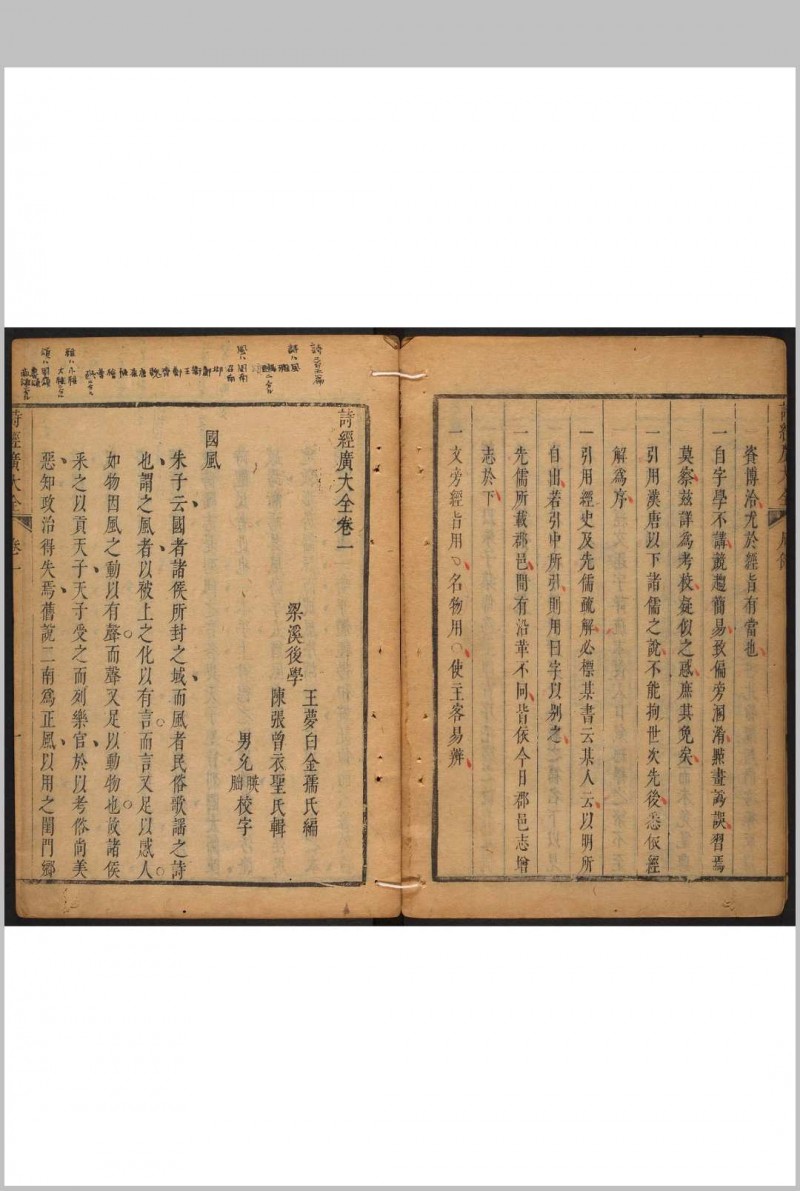 資博洽尤於經旨有當也
一自字學不講競趨簡易致偏旁溷淆點畫訛誤習焉
莫察茲詳為考校疑似之惑庶其免矣
一引用漢唐以下諸儒之說不能拘世次先後悉依經
解為序
一引用經史及先儒疏解必標某書云某人云以明所
自出若引中所引則用曰字以別之
一先儒所載郡邑間有沿革不同皆依今日郡邑志增
志於下
一文旁經旨用、名物用○使主客易辨
詩經廣大全卷一
梁溪後學
王夢白金孺氏編
陳張曾衣聖氏輯
男允
校字
國風
朱子云國者諸侯所封之域而風者民俗歌謠之詩
也謂之風者以被上之化以有言而言又足以感人
如物因風之動以有聲而聲又足以動物也故諸侯
采之以貢天子天子受之而列樂官於以考俗尚美
惡知政治得失焉舊說二南為正風以用之閨門鄉
詩經廣大全
卷一
一